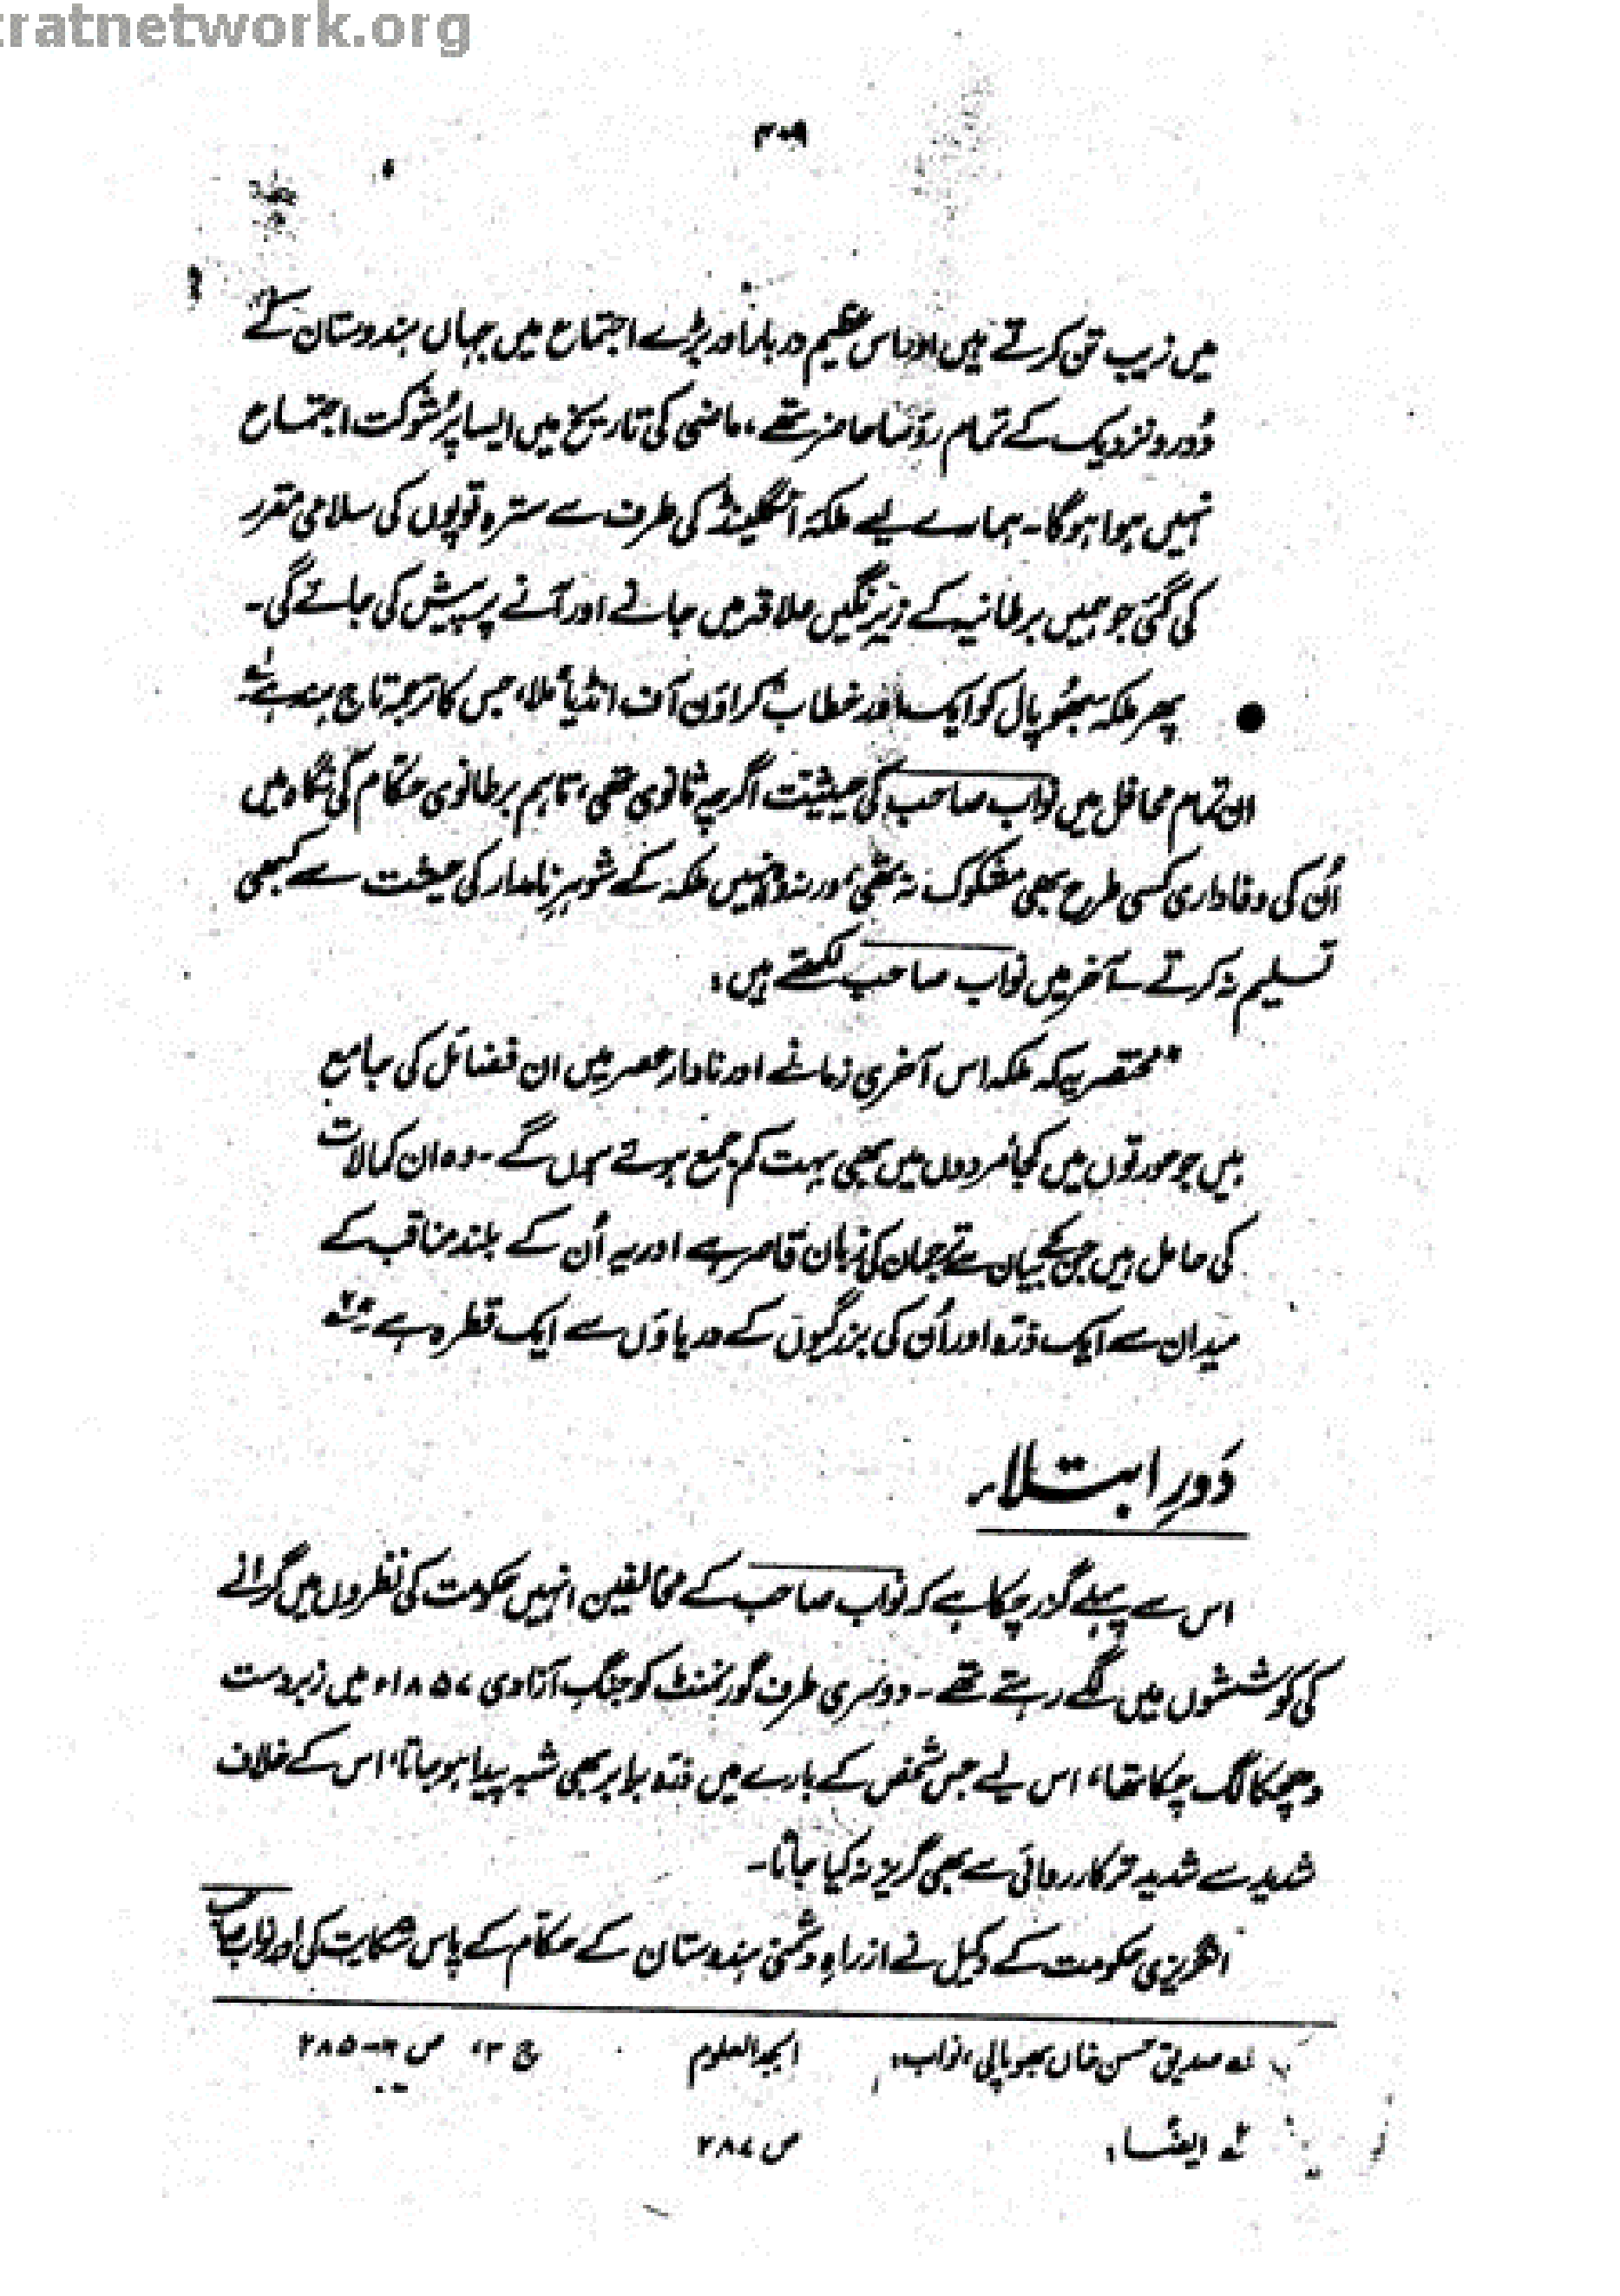 tratnetwork.org
۳۰۹
میں زیب تن کرتے ہیں اور اس عظیم دربار اور بڑے اجتماع میں جہاں ہندوستان کے
دُور و نزدیک کے تمام رؤسا حاضر تھے، ماضی کی تاریخ میں ایسا پُرشوکت اجتماع
نہیں ہوا ہوگا۔ ہمارے لیے ملکۂ انگلینڈ کی طرف سے سترہ توپوں کی سلامی مقرر
کی گئی جو ہمیں برطانیہ کے زیرِ نگیں علاقہ میں جانے اور آنے پر پیش کی جائے گی۔
● پھر ملکہ بھُوپال کو ایک اور خطاب کراؤن آف انڈیا ملا، جس کا ترجمہ تاج ہند ہے۔ لہ
ان تمام محافل میں نواب صاحب کی حیثیت اگرچہ ثانوی تھی، تاہم برطانوی حکام کی نگاہ میں
اُن کی وفاداری کسی طرح بھی مشکوک نہ تھی ورنہ وہ انہیں ملکہ کے شوہرِ نامدار کی حیثیت سے کبھی
تسلیم نہ کرتے۔ آخر میں نواب صاحب لکھتے ہیں:
"مختصر یہ کہ ملکہ اس آخری زمانے اور نادار عصر میں ان فضائل کی جامع
ہیں جو عورتوں میں کجا مردوں میں بھی بہت کم جمع ہوتے ہوں گے۔ وہ ان کمالات
کی حامل ہیں جن کے بیان سے ترجمان کی زبان قاصر ہے اور یہ اُن کے بلند مناقب کے
میدان سے ایک ذرّہ اور اُن کی بزرگیوں کے دریاؤں سے ایک قطرہ ہے۔" ۲ہ
دَورِ ابتلاء
اس سے پہلے گزر چکا ہے کہ نواب صاحب کے مخالفین انہیں حکومت کی نظروں میں گرانے
کی کوششوں میں لگے رہتے تھے۔ دوسری طرف گورنمنٹ کو جنگِ آزادی ۱۸۵۷ء میں زبردست
دھچکا لگ چکا تھا، اس لیے جس شخص کے بارے میں ذرّہ برابر بھی شبہ پیدا ہو جاتا، اس کے خلاف
شدید سے شدید تر کارروائی سے بھی گریز نہ کیا جاتا۔
انگریزی حکومت کے وکیل نے ازراہِ دشمنی ہندوستان کے حکّام کے پاس شکایت کی اور نواب صاحب
لہ صدیق حسن خاں بھوپالی، نواب: ابجد العلوم ج ۳، ص ۶-۲۸۵
۲ہ ایضاً: ص ۲۸۷